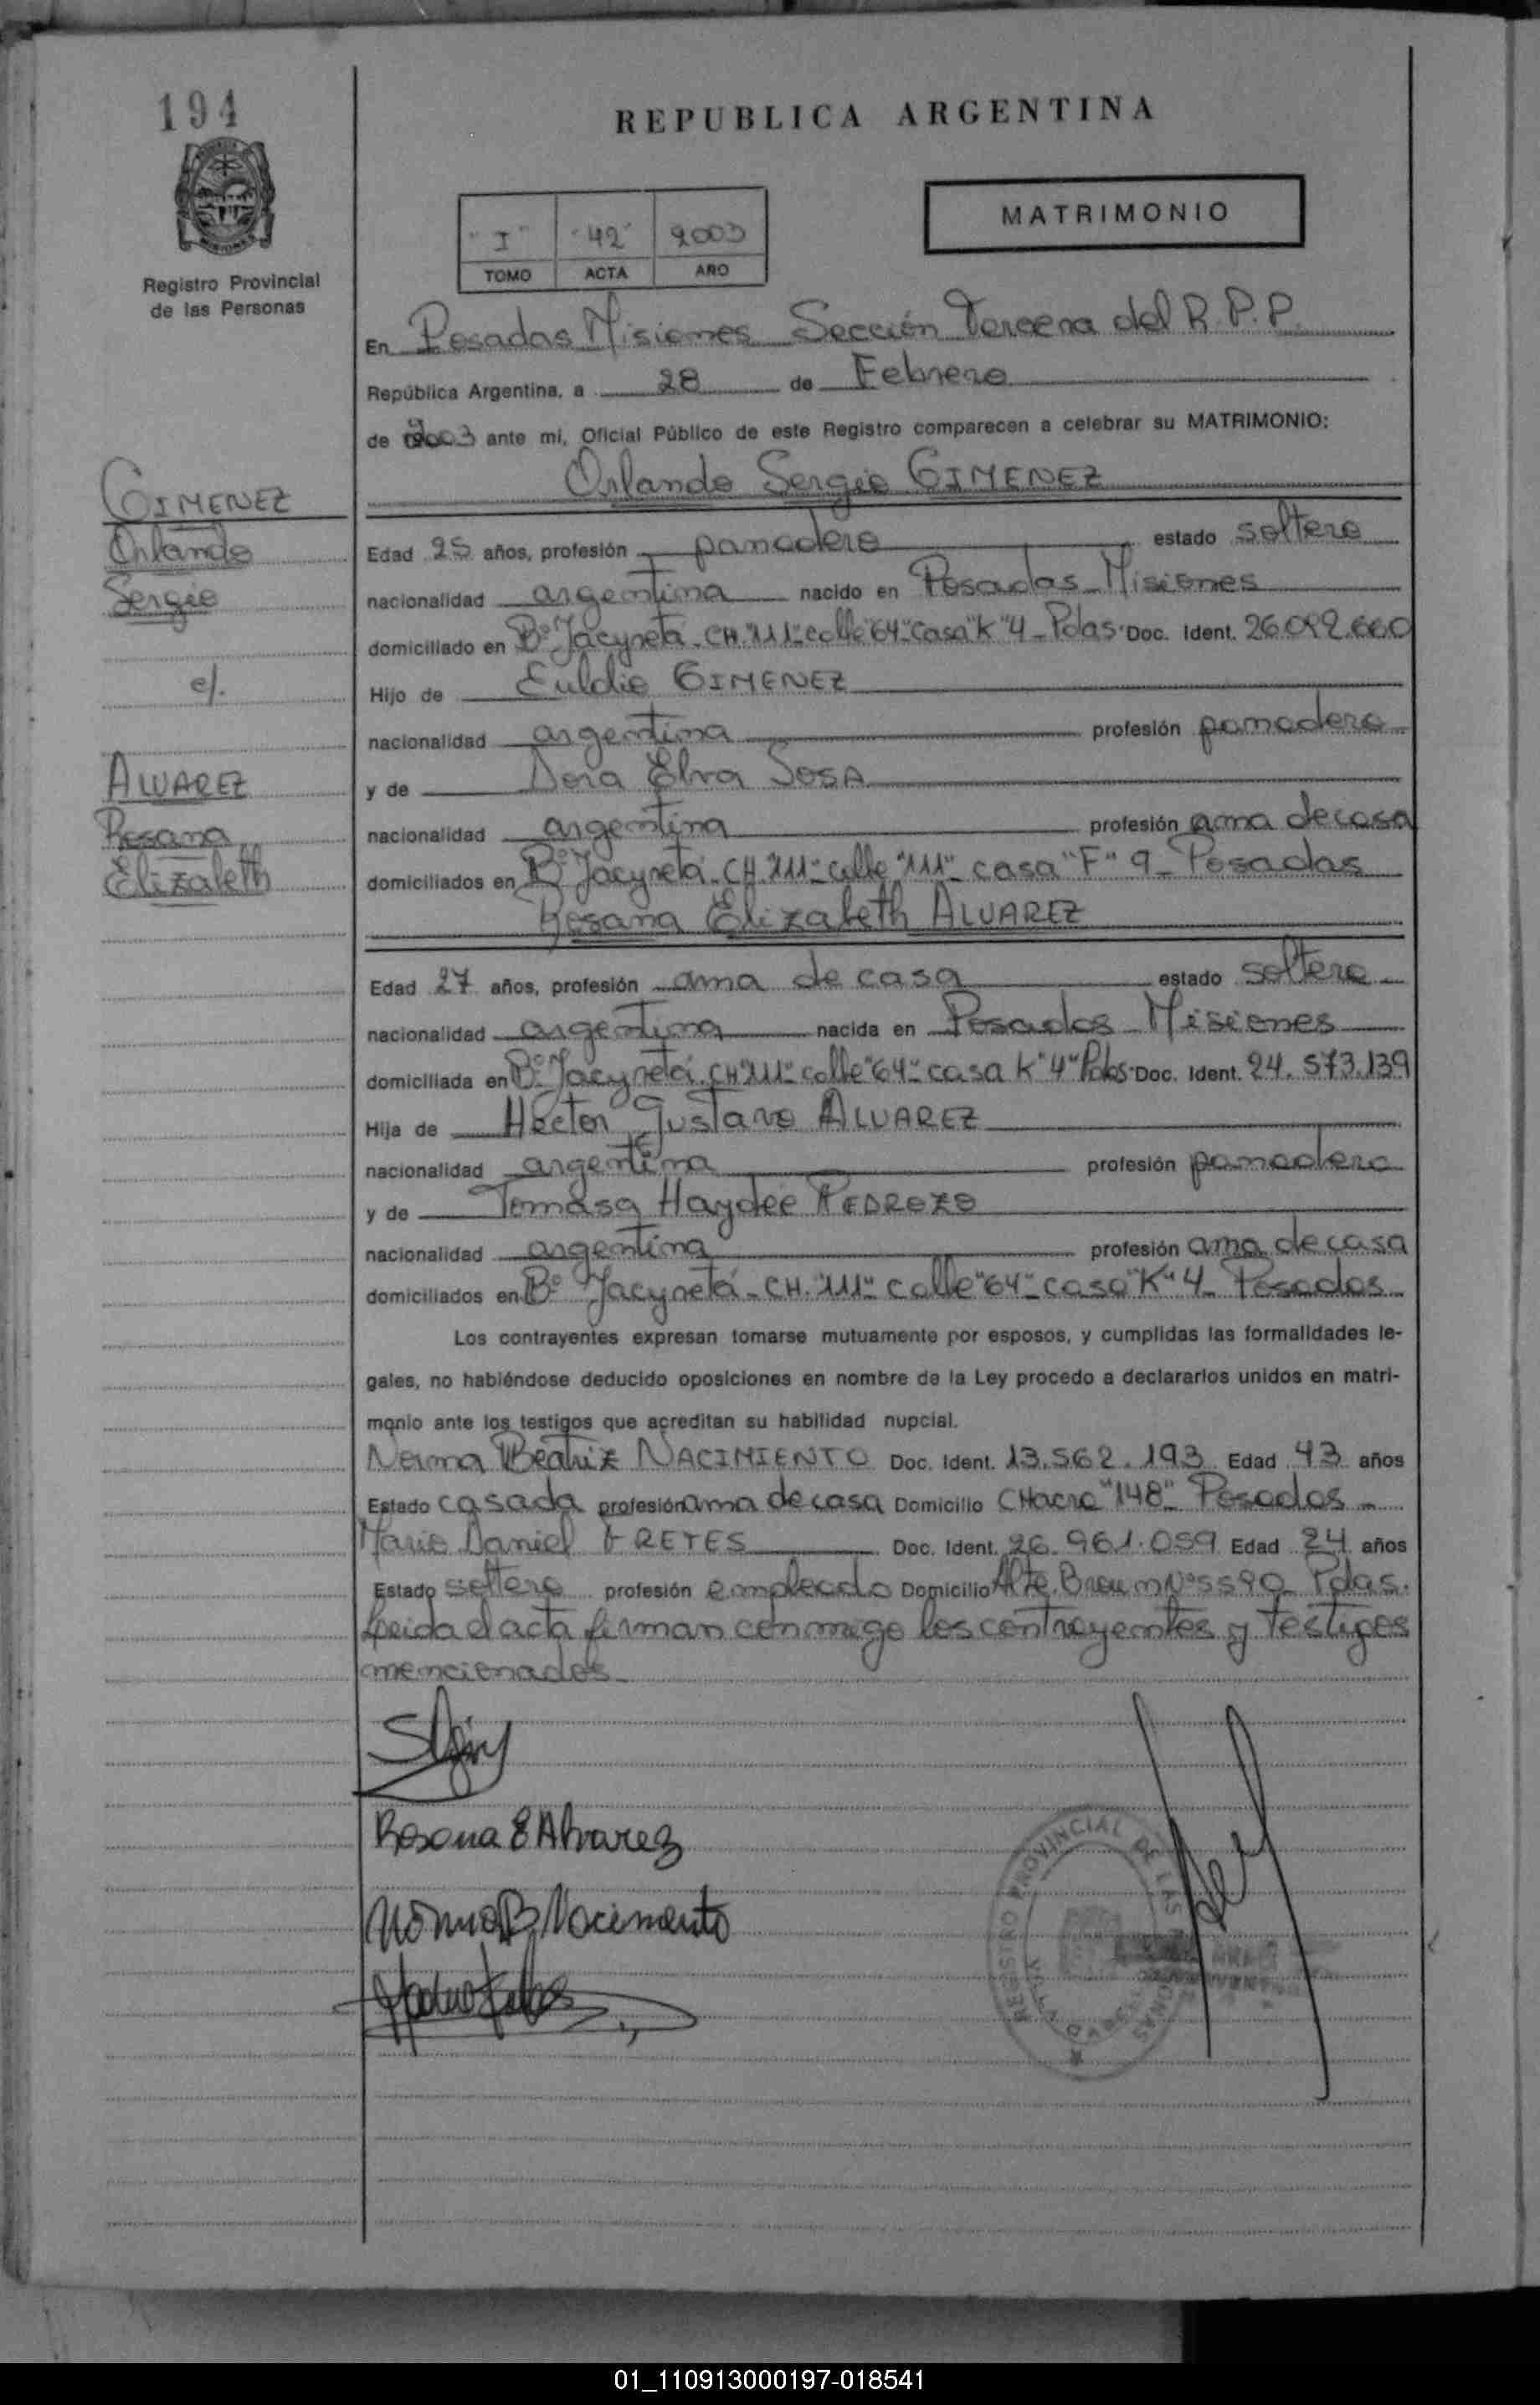 194
REPUBLICA ARGENTINA
MATRIMONIO
"I" "42" 2003
TOMO ACTA AÑO
Registro Provincial
de las Personas
En Posadas Misiones Sección Tercera del R.P.P.
República Argentina, a 28 de Febrero
de 2003 ante mi, Oficial Público de este Registro comparecen a celebrar su MATRIMONIO:
Orlando Sergio GIMENEZ
GIMENEZ
Orlando
Sergio
c/.
ALVAREZ
Rosana
Elizabeth
Edad 25 años, profesión panadero estado soltero
nacionalidad argentina nacido en Posadas Misiones
domiciliado en Bº Yacyretá - CH. "111" calle "64" casa "K" 4 - Pdas. Doc. Ident. 26.092.660
Hijo de GIMENEZ
nacionalidad argentina profesión panadero
y de Dora Elva SOSA
nacionalidad argentina profesión ama de casa
domiciliados en Bº Yacyretá - CH. "111" calle "111" casa "F" 9 - Posadas
Rosana Elizabeth ALVAREZ
Edad 27 años, profesión ama de casa estado soltera
nacionalidad argentina nacida en Posadas Misiones
domiciliada en Bº Yacyretá - CH "111" calle "64" casa K "4" Pdas. Doc. Ident. 24.573.139
Hija de Héctor Gustavo ALVAREZ
nacionalidad argentina profesión panadero
y de Tomasa Haydée PEDROZO
nacionalidad argentina profesión ama de casa
domiciliados en Bº Yacyretá - CH. "111" calle "64" casa "K" 4 - Posadas
Los contrayentes expresan tomarse mutuamente por esposos, y cumplidas las formalidades le-
gales, no habiéndose deducido oposiciones en nombre de la Ley procedo a declararlos unidos en matri-
monio ante los testigos que acreditan su habilidad nupcial.
Norma Beatriz NACIMIENTO Doc. Ident. 13.562.193 Edad 43 años
Estado casada profesión ama de casa Domicilio CHacra "148" Posadas
Mario Daniel Doc. Ident. 26.961.059 Edad 24 años
Estado soltero profesión empleado Domicilio Alte. Brown Nº 5590 Pdas.
Leida el acta firman conmigo los contrayentes y testigos
mencionados
Rosana E Alvarez
Norma B. Nacimiento
REGISTRO PROVINCIAL DE LAS PERSONAS
01_110913000197-018541